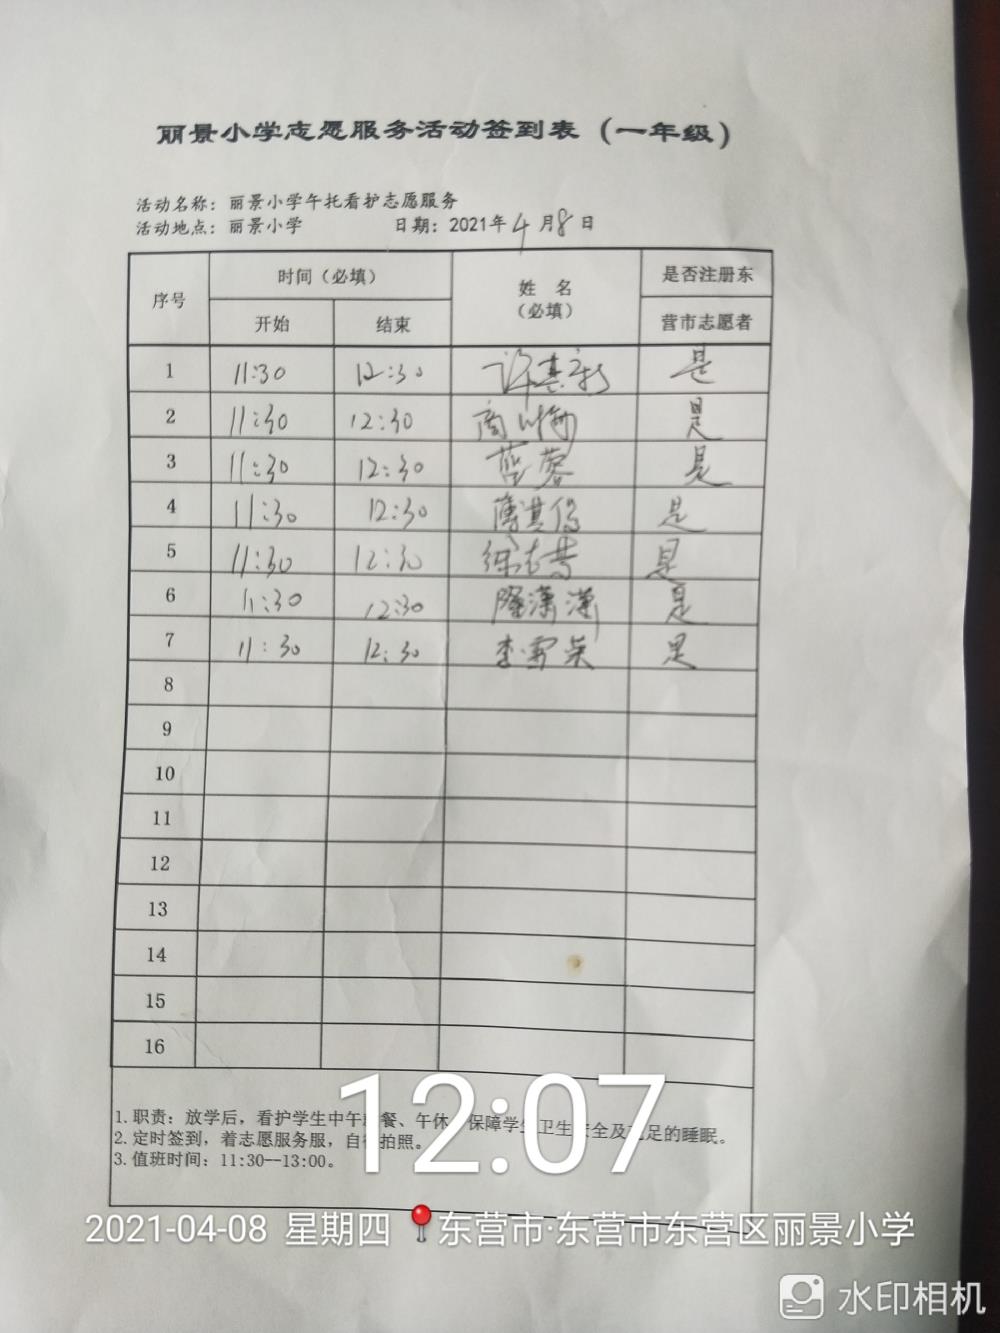 丽景小学志愿服务活动签到表（一年级）
活动名称：丽景小学午托看护志愿服务
活动地点：丽景小学 日期：2021年4月8日
序号 时间（必填） 姓 名（必填） 是否注册东营市志愿者
开始 结束
1 11:30 12:30 是
2 11:30 12:30 是
3 11:30 12:30 蓝蓉 是
4 11:30 12:30 是
5 11:30 12:30 是
6 11:30 12:30 隆潇潇 是
7 11:30 12:30 李雪荣 是
8
9
10
11
12
13
14
15
16
1.职责：放学后，看护学生中午 餐、午休，保障学生卫生安全及充足的睡眠。
2.定时签到，着志愿服务服，自行拍照。
3.值班时间：11:30--13:00。
12:07
2021-04-08 星期四 东营市·东营市东营区丽景小学
水印相机